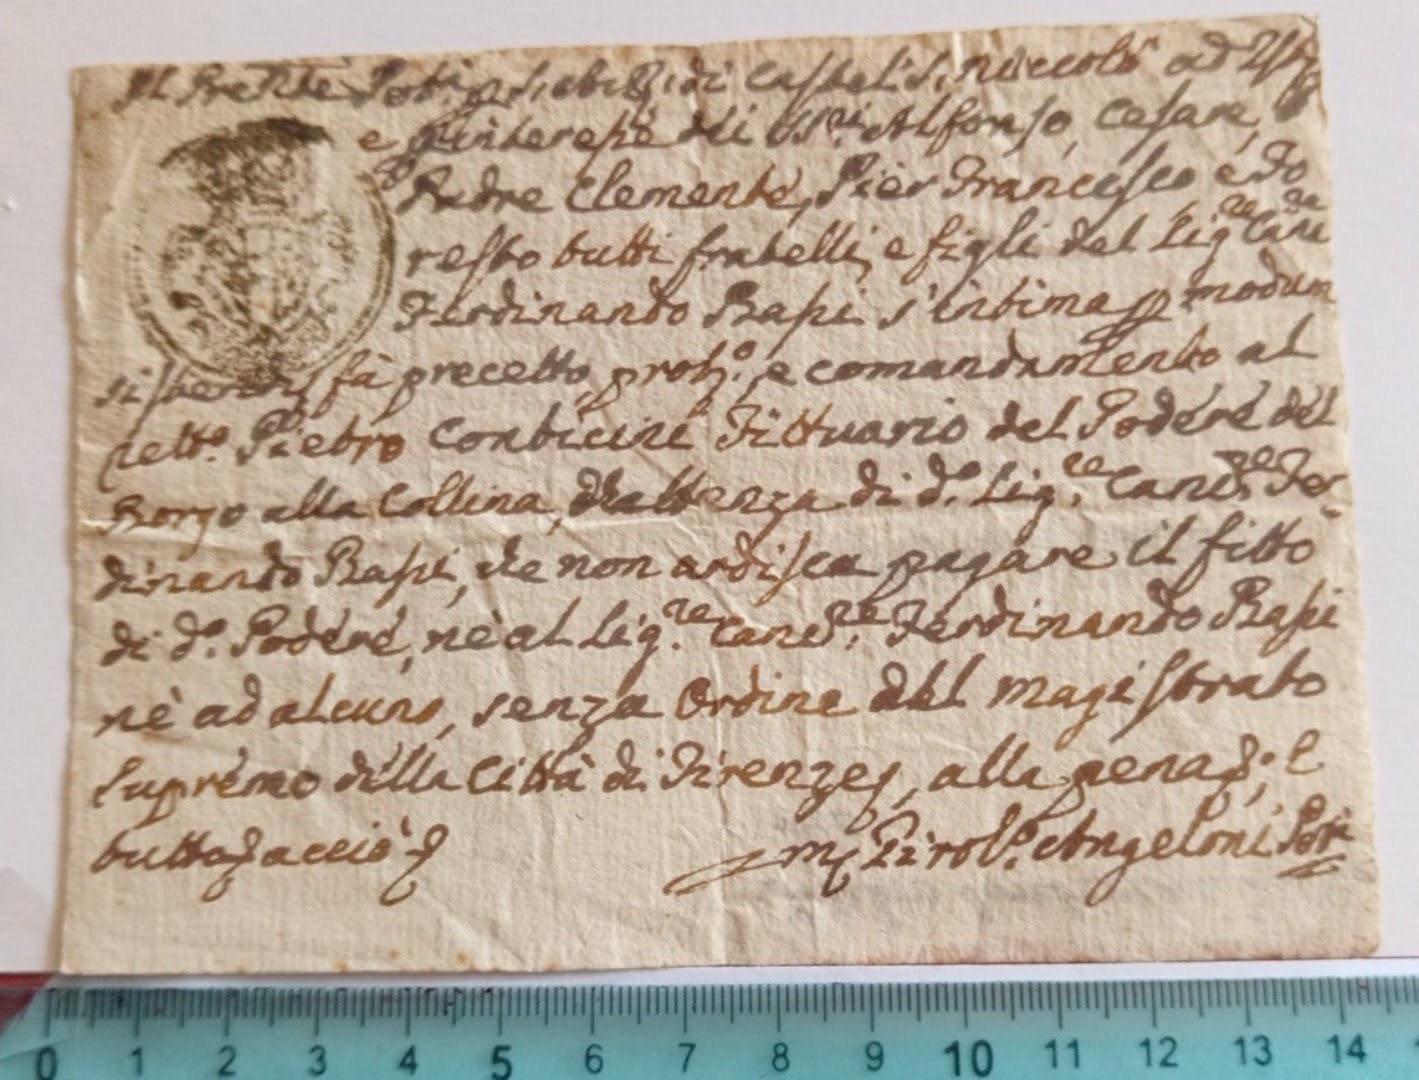 Il Pre Potà p. S. di Castel S. Niccolò ad
e p interesse delli SS.ri Alfonso, Cesare,
Padre Clemente, Pier Francesco e Do
resto tutti fratelli, e figli del Sig.re Cane
Ferdinando Bassi s'intima p modum
si fà precetto, proib.o, e comandamento al
dett.o Pietro Conticini Fittuario del Podere del
Borgo alla Collina, di d.o Sig.re Canc.re Fer
dinando Bassi, che non ardisca pagare il fitto
di d.o Podere, nè al Sig.re Canc.re Ferdinando Bassi
nè ad alcuno, senza ordine del Magistrato
Supremo della Città di Firenze, alla pena p. e
tutto p acciò p
Angeloni Potà
0 1 2 3 4 5 6 7 8 9 10 11 12 13 14